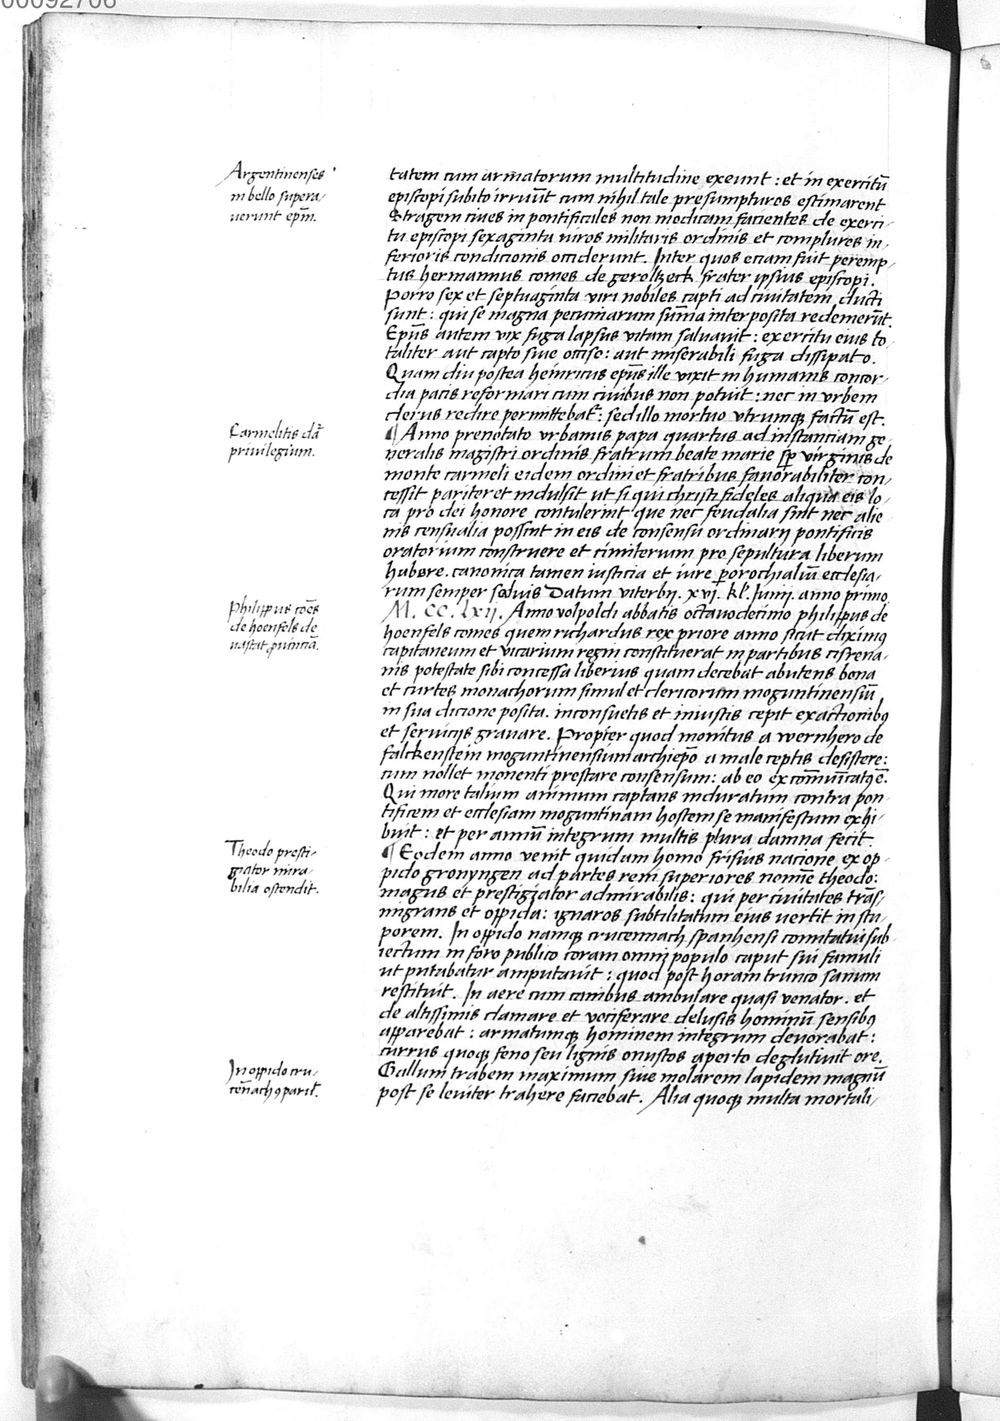 00092706
Argentinenses
in bello supera-
uerunt ep̄m.
tatem cum armatorum multitudine exeunt : et in exercitū
episcopi subito irruūt cum nihil tale presumpturos estimarent
Stragem ciues in pontificales non modicam facientes de exerci-
tu episcopi sexaginta uiros militaris ordinis et complures in-
ferioris condicionis occiderunt. Inter quos eciam fuit peremp-
tus hermannus comes de geroltzeck frater ipsius episcopi.
Porro sex et septuaginta viri nobiles capti ad ciuitatem ducti
sunt : qui se magna pecuniarum sum̄a interposita redemerūt.
Ep̄us autem vix fuga lapsus vitam saluauit : exercitu eius to-
taliter aut capto siue occiso : aut miserabili fuga dissipato.
Quam diu postea heinricus ep̄us ille vixit in humanis concor-
dia pacis reformari cum ciuibus non potuit : nec in vrbem
clerus redire permittebat̄ : sed illo mortuo vtrumq; factū est.
Carmelitis dāt
priuilegium.
¶ Anno prenotato vrbanus papa quartus ad instanciam ge-
neralis magistri ordinis fratrum beate marie sp̄ virginis de
monte carmeli eidem ordini et fratribus fauorabiliter con-
cessit pariter et indulsit ut si qui christi fideles aliqua eis lo-
ca pro dei honore contulerint que nec feudalia sint nec alie
nis censualia possint in eis de consensu ordinarij pontificis
oratorium construere et cimiterium pro sepultura liberum
habere. canonica tamen iusticia et iure parochialiū ecclesia-
rum semper saluis Datum viterbij. xvj. kl'. Junij. anno primo
Philippus com̄s
de hoenfels de
uastat ꝓuinciā.
M. CC. lxij. Anno volpoldi abbatis octauodecimo philippus de
hoenfels comes quem richardus rex priore anno sicut diximꝰ
capitaneum et vicarium regni constituerat in partibus cisrena-
nis potestate sibi concessa liberius quam decebat abutens bona
et curtes monachorum simul et clericorum moguntinensiū
in sua dicione posita. inconsuetis et iniustis cepit exactionibꝰ
et seruicijs grauare. Propter quod monitus a wernhero de
falckenstein moguntinensium archiep̄o a male ceptis desistere:
cum nollet monenti prestare consensum : ab eo excōmūicatꝰ ē.
Qui more talium animum captans induratum contra pon-
tificem et ecclesiam moguntinam hostem se manifestum exhi-
buit : et per annū integrum multis plura damna fecit.
Theodo presti-
giator mira-
bilia ostendit.
¶ Eodem anno venit quidam homo frisius nacione ex op-
pido gronyngen ad partes reni superiores nomīe theodo:
magus et prestigiator admirabilis : qui per ciuitates trās-
migrans et oppida : ignaros subtilitatum eius uertit in stu-
porem. In oppido namq; crucennach spanhensi comitatui sub
iectum in foro publico coram omni populo caput sui famuli
ut putabatur amputauit : quod post horam trunco sanum
restituit. In aere cum canibus ambulare quasi venator. et
de altissimis clamare et vociferare delusis hominū sensibꝰ
apparebat : armatumq; hominem integrum deuorabat :
currus quoq; feno seu lignis onustos aperto deglutiuit ore.
In oppido cru-
cen̄ach ꝯparit̄.
Gallum trabem maximum siue molarem lapidem magnū
post se leuiter trahere faciebat. Alia quoq; multa mortali-